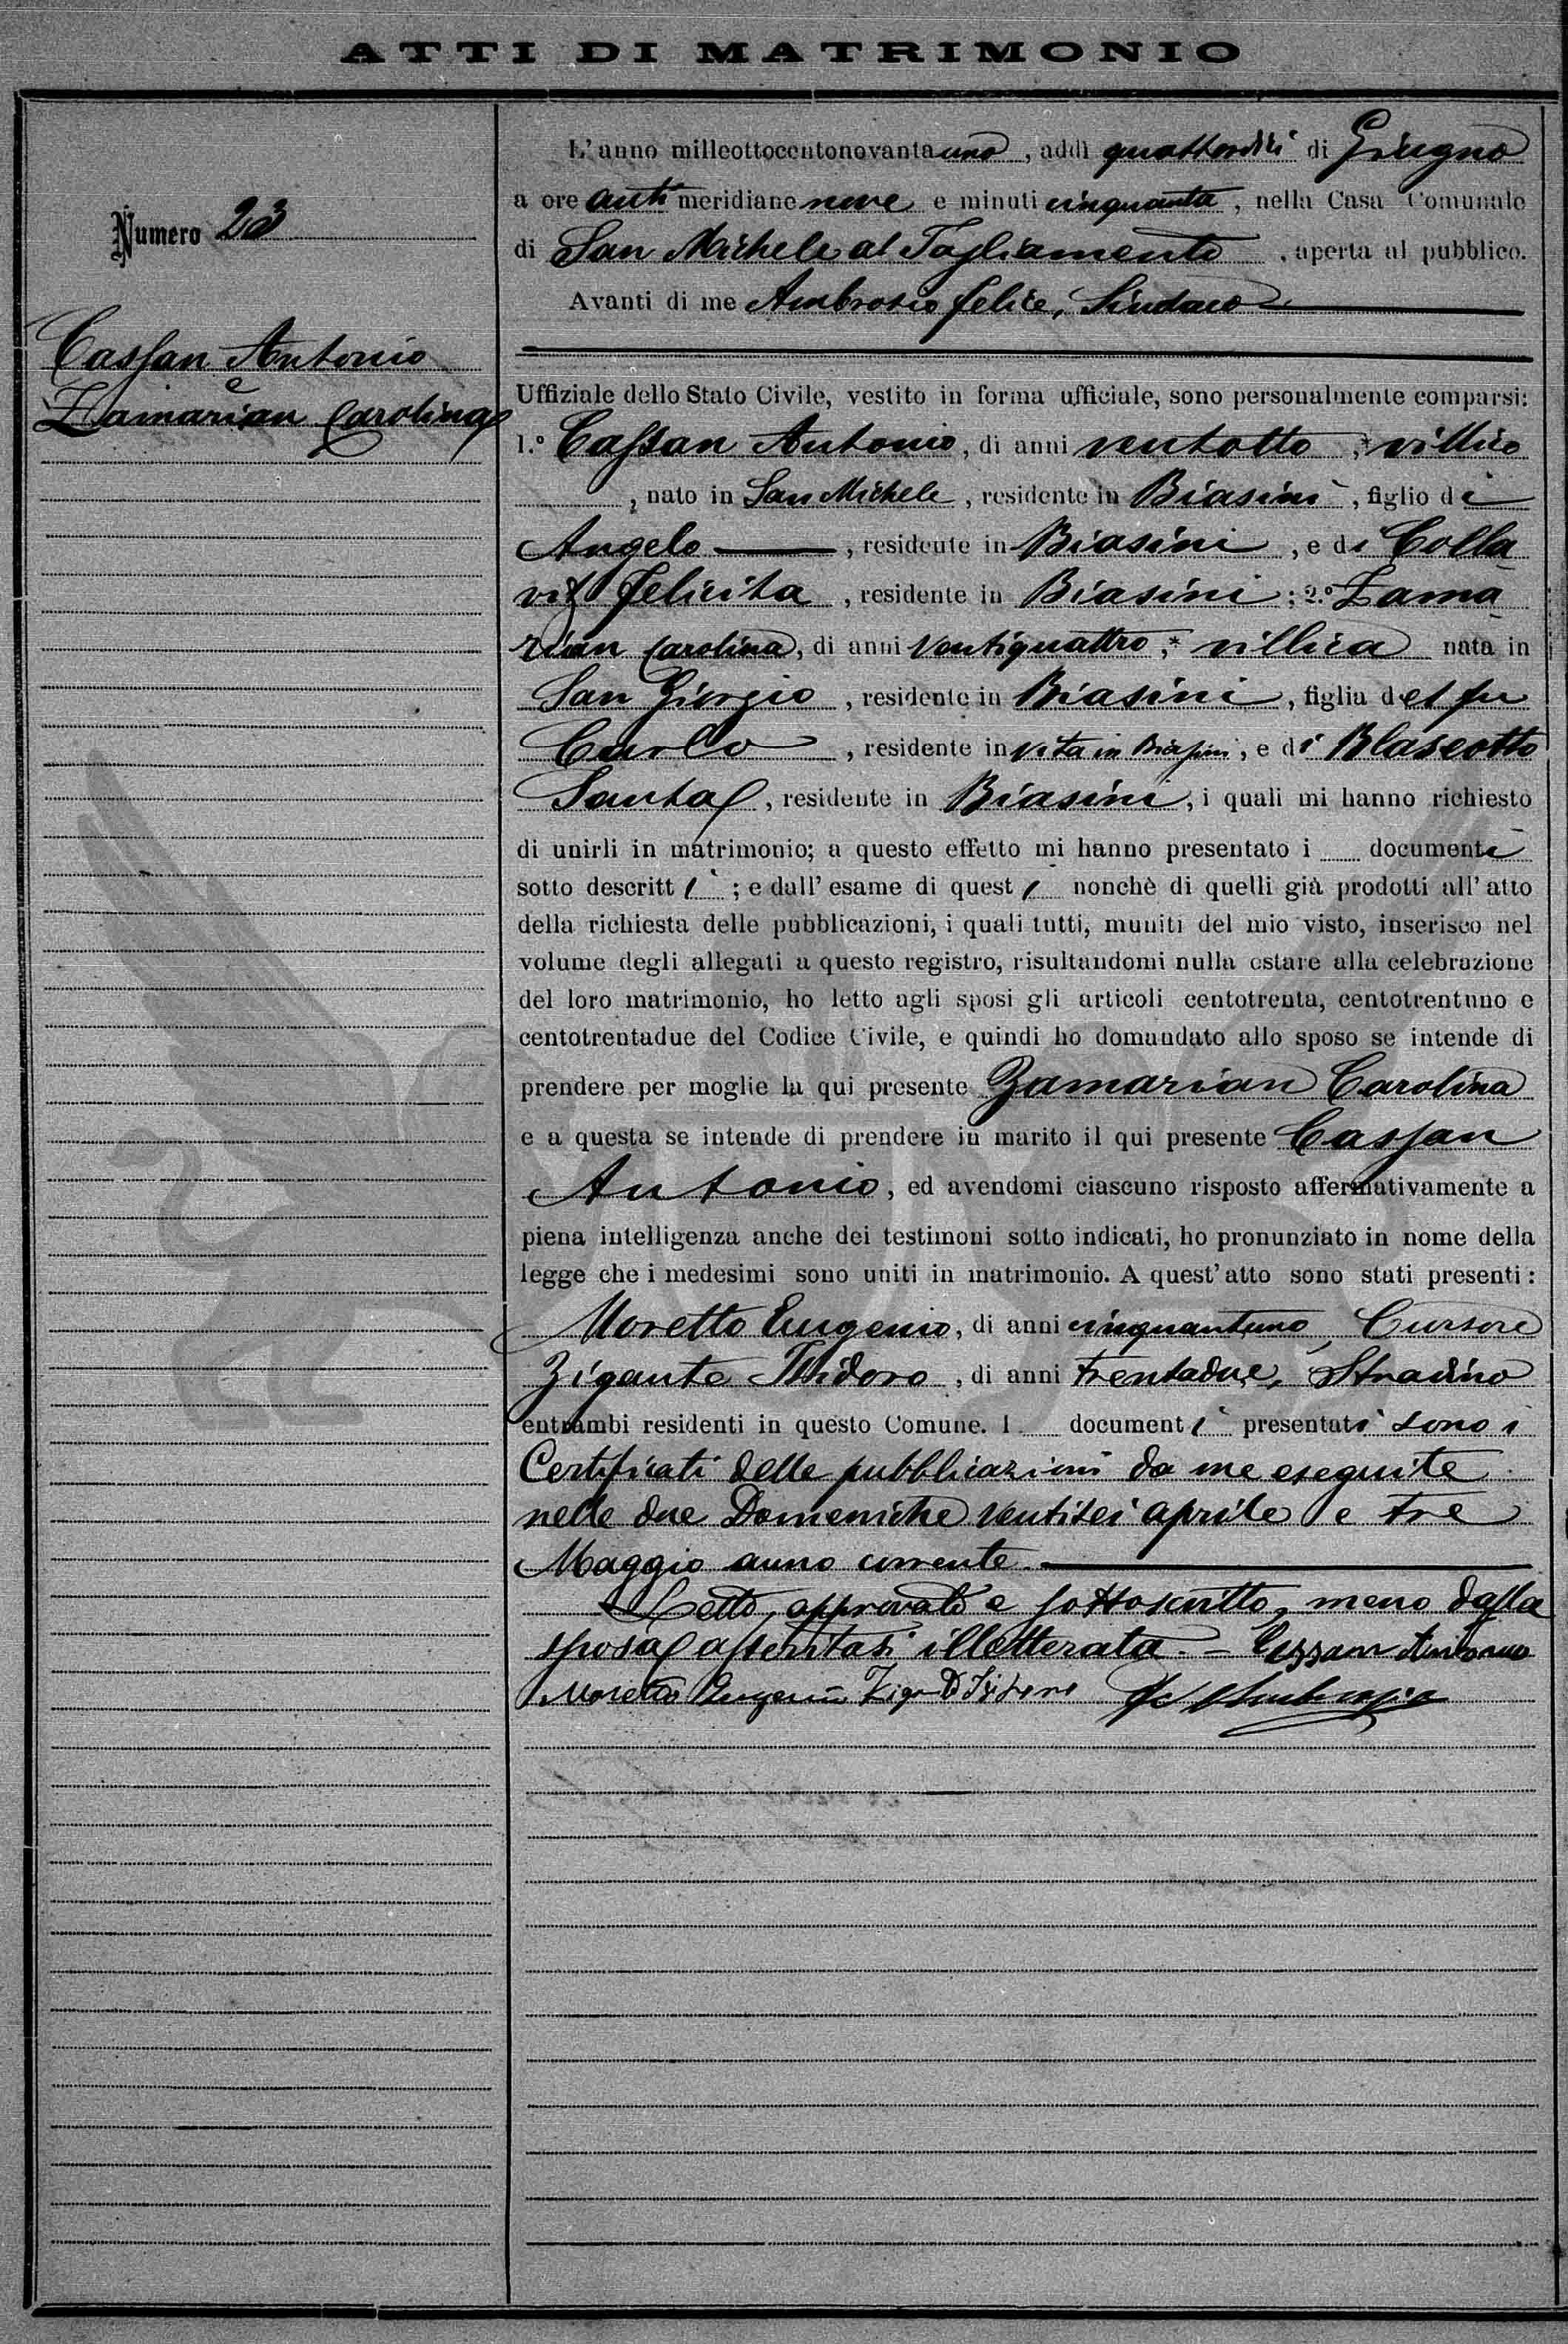 ATTI DI MATRIMONIO
Numero 23
Cassan Antonio
e
Zamarian Carolina
L'anno milleottocentonovantauno, addì quattordici di Giugno
a ore anti meridiane nove e minuti cinquanta, nella Casa Comunale
di San Michele al Tagliamento, aperta al pubblico.
Avanti di me Ambrosio Felice, Sindaco
Uffiziale dello Stato Civile, vestito in forma ufficiale, sono personalmente comparsi:
1.° Cassan Antonio, di anni ventotto, villico
, nato in San Michele, residente in Biasini, figlio di
Angelo, residente in Biasini, e di Colla-
vit Felicita, residente in Biasini; 2.° Zama-
rian Carolina, di anni ventiquattro, villica nata in
San Giorgio, residente in Biasini, figlia del fu
Carlo, residente in vita in Biasini, e di Blaseotto
Santa, residente in Biasini, i quali mi hanno richiesto
di unirli in matrimonio; a questo effetto mi hanno presentato i documenti
sotto descritti; e dall'esame di questi nonchè di quelli già prodotti all'atto
della richiesta delle pubblicazioni, i quali tutti, muniti del mio visto, inserisco nel
volume degli allegati a questo registro, risultandomi nulla ostare alla celebrazione
del loro matrimonio, ho letto agli sposi gli articoli centotrenta, centotrentuno e
centotrentadue del Codice Civile, e quindi ho domandato allo sposo se intende di
prendere per moglie la qui presente Zamarian Carolina
e a questa se intende di prendere in marito il qui presente Cassan
Antonio, ed avendomi ciascuno risposto affermativamente a
piena intelligenza anche dei testimoni sotto indicati, ho pronunziato in nome della
legge che i medesimi sono uniti in matrimonio. A quest'atto sono stati presenti:
Moretto Eugenio, di anni cinquantuno, Cursore
Zigante Isidoro, di anni trentadue, Stradino
entrambi residenti in questo Comune. I documenti presentati sono i
Certificati delle pubblicazioni da me eseguite
nelle due Domeniche ventisei aprile e tre
Maggio anno corrente.
Letto, approvato e sottoscritto, meno dalla
sposa asseritasi illetterata. – Cassan Antonio
Moretto Eugenio